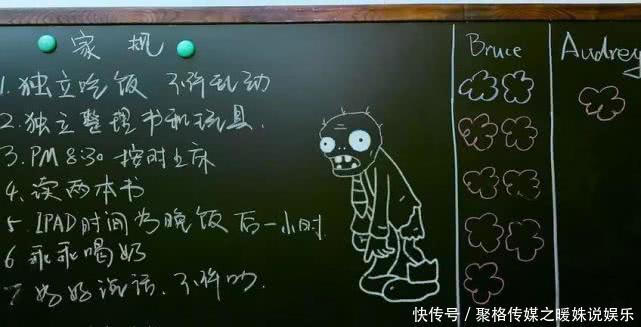 家规
1.独立吃饭 不许乱动
2.独立整理书和玩具.
3.PM 8:30 按时上床
4.读两本书
5.IPAD时间为晚饭后一小时
6 乖乖喝奶
7 好好说话、不许叻.
Bruce
Audrey
快传号/聚格传媒之暖姝说娱乐